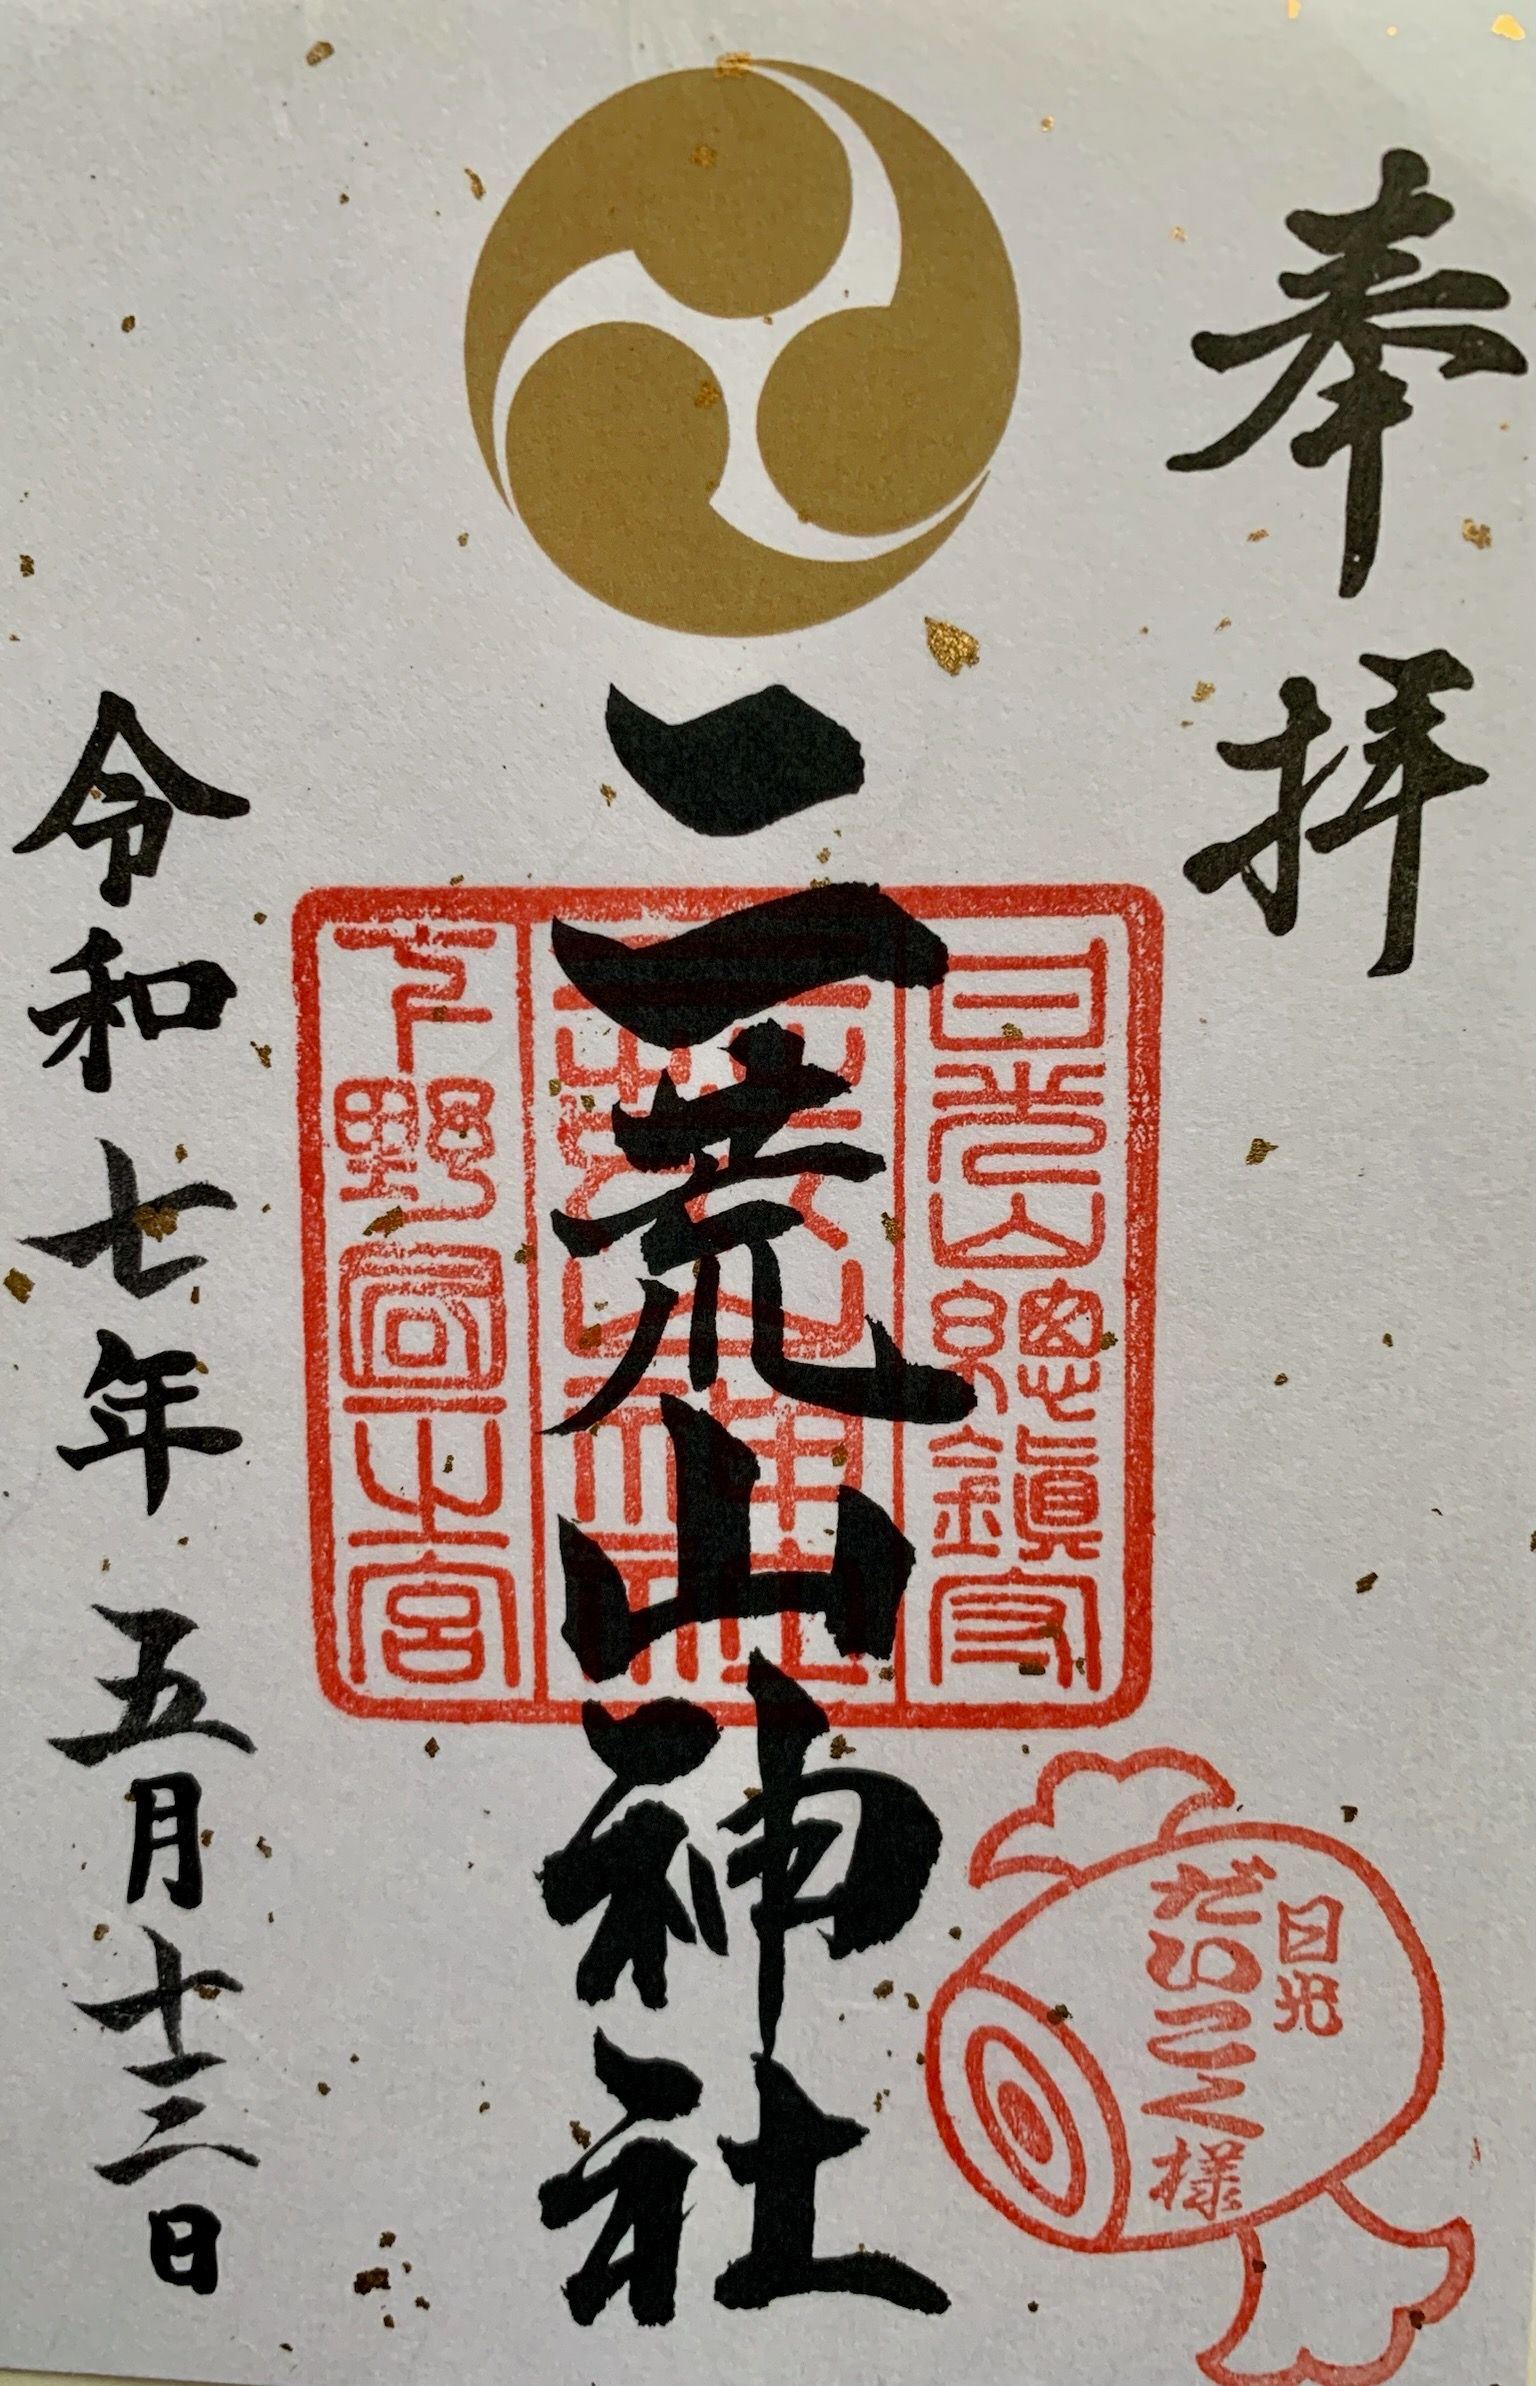 奉拝
日光山總鎮守
二荒山神社
下野國一之宮
二荒山神社
日光
だいこく様
令和七年 五月十三日